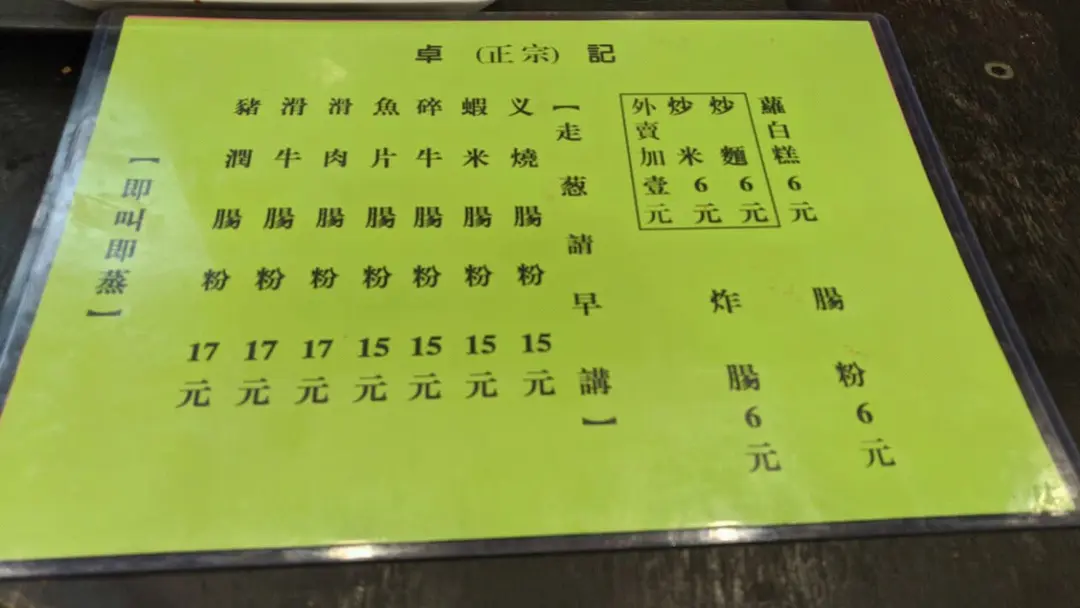 卓 (正宗) 記
蘿白糕6元
炒麵6元
炒米6元
外賣加壹元
腸粉6元
炸腸6元
【走葱請早講】
义燒腸粉15元
蝦米腸粉15元
碎牛腸粉15元
魚片腸粉15元
滑肉腸粉17元
滑牛腸粉17元
豬潤腸粉17元
【即叫即蒸】